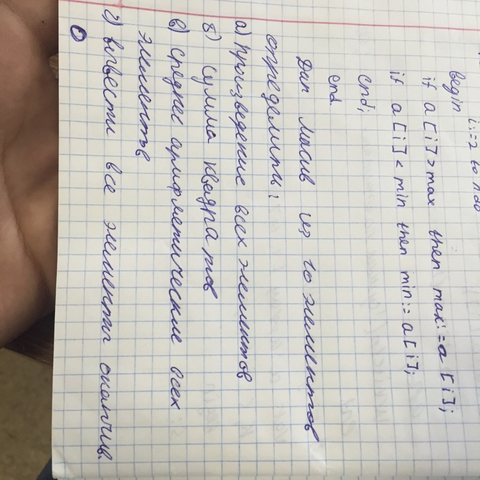 begin i:=2 to n do
if a[i]>max then max:=a[i];
if a[i]<min then min:=a[i];
end;
end
Дан масив из 10 элементов
определить:
а) произведение всех элементов
б) сумма квадратов
в) среднее арифметическое всех
элементов
г) вывести все элементы оканчив.
0